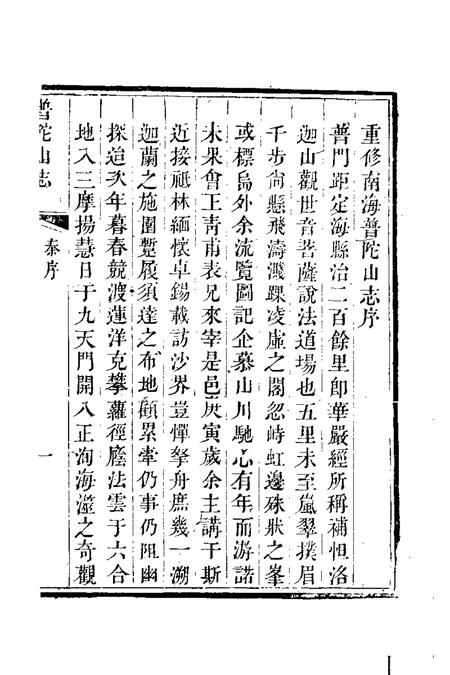 重修南海普陀山志序
普門距定海縣治二百餘里卽華嚴經所稱補怛洛
迦山觀世音菩薩說法道塲也五里未至嵐翠撲眉
千步尙懸飛濤濺踝凌虛之閣忽峙虹邊殊狀之峯
或標鳥外余流覽圖記企慕山川馳心有年而游諾
未果會王靑甫表兄來宰是邑庚寅歲余主講于斯
近接祇林緬懷卓錫載訪沙界豈憚拏舟庶幾一溯
迦蘭之施園蹔履須達之布地顧累牽仍事仍阻幽
探迨次年暮春競渡蓮洋克攀蘿徑蔭法雲于六合
地入三摩揚慧日于九天門開八正洵海澨之奇觀
普陀山志
秦序
一